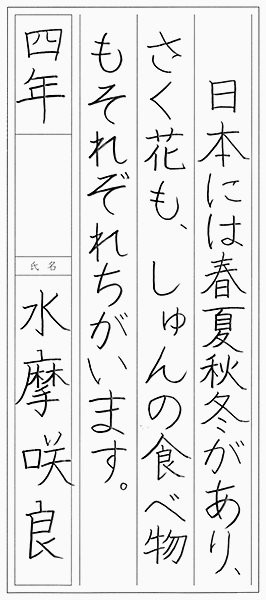 日本には春夏秋冬があり、
さく花も、しゅんの食べ物
もそれぞれちがいます。
四年
氏名
水摩咲良